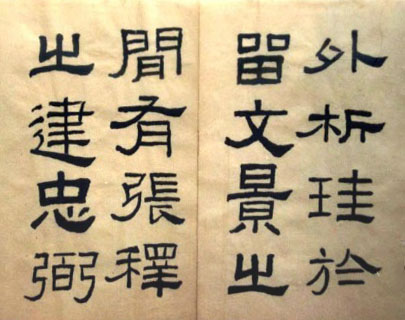 外析珪於
留文景之
間有張釋
之建忠弼